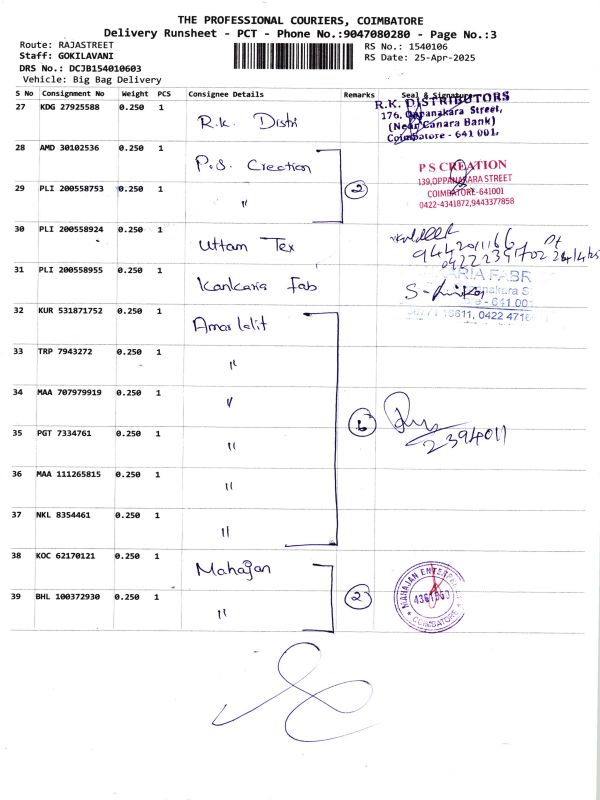 THE PROFESSIONAL COURIERS, COIMBATORE
Delivery Runsheet - PCT - Phone No.:9047080280 - Page No.:3
Route: RAJASTREET
RS No.: 1540106
Staff: GOKILAVANI
RS Date: 25-Apr-2025
DRS No.: DCJB154010603
Vehicle: Big Bag Delivery
S No Consignment No Weight PCS Consignee Details Remarks Seal & Signature
27 KDG 27925588 0.250 1 R.K. Distri
R.K. DISTRIBUTORS
176, Oppanakara Street,
(Near Canara Bank)
Coimbatore - 641 001.
28 AMD 30102536 0.250 1 P.S. Creation
29 PLI 200558753 0.250 1 " 2
P S CREATION
139,OPPANAKARA STREET
COIMBATORE-641001
0422-4341872,9443377858
30 PLI 200558924 0.250 1 Uttam Tex
9442011166
31 PLI 200558955 0.250 1 Kankaria Fab
KARIA FABR
32 KUR 531871752 0.250 1 Amar lalit
33 TRP 7943272 0.250 1 "
34 MAA 707979919 0.250 1 "
35 PGT 7334761 0.250 1 " 6
2394011
36 MAA 111265815 0.250 1 "
37 NKL 8354461 0.250 1 "
38 KOC 62170121 0.250 1 Mahajan
39 BHL 100372930 0.250 1 " 2
MAHAJAN ENTERPRISES
COIMBATORE